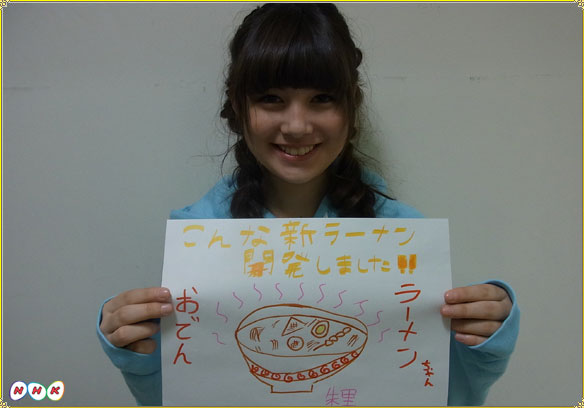 こんな新ラーメン
開発しました!!
おでん
ラーメン
ちゃん
朱里
NHK